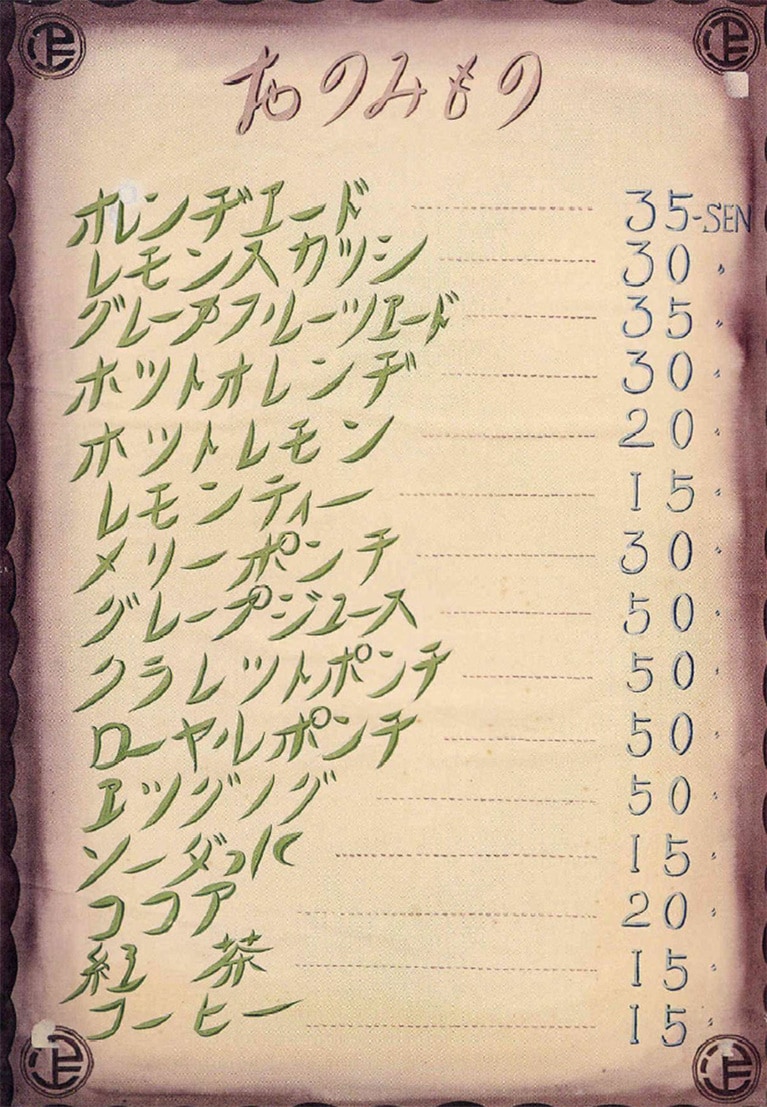 おのみもの
オレンヂエード 35-SEN
レモンスカツシ 30 〃
グレープフルーツエード 35 〃
ホツトオレンヂ 30 〃
ホツトレモン 20 〃
レモンティー 15 〃
メリーポンチ 30 〃
グレープジュース 50 〃
クラレツトポンチ 50 〃
ローヤルポンチ 50 〃
エツグノグ 50 〃
ソーダ水 15 〃
ココア 20 〃
紅茶 15 〃
コーヒー 15 〃